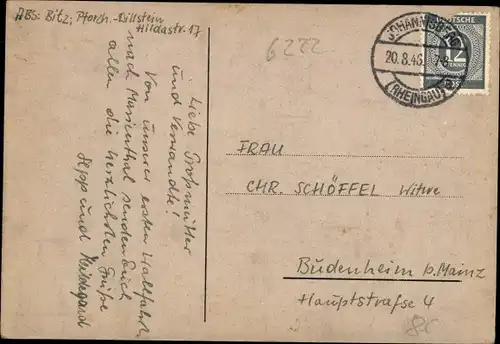 ABS: Bitz, Pforzh.-Dillstein
Hildastr. 17
Liebe Großmutter
und Verwandte!
Von unserer ersten Wallfahrt
nach Marienthal senden Euch
allen die herzlichsten Grüße
Sepp und Heidegard
6222
DEUTSCHE
12
PFENNIG
JOHANNISBERG
20.8.46. 7-8
(RHEINGAU)
FRAU
CHR. SCHÖFFEL Witwe
Budenheim b. Mainz
Hauptstraße 4